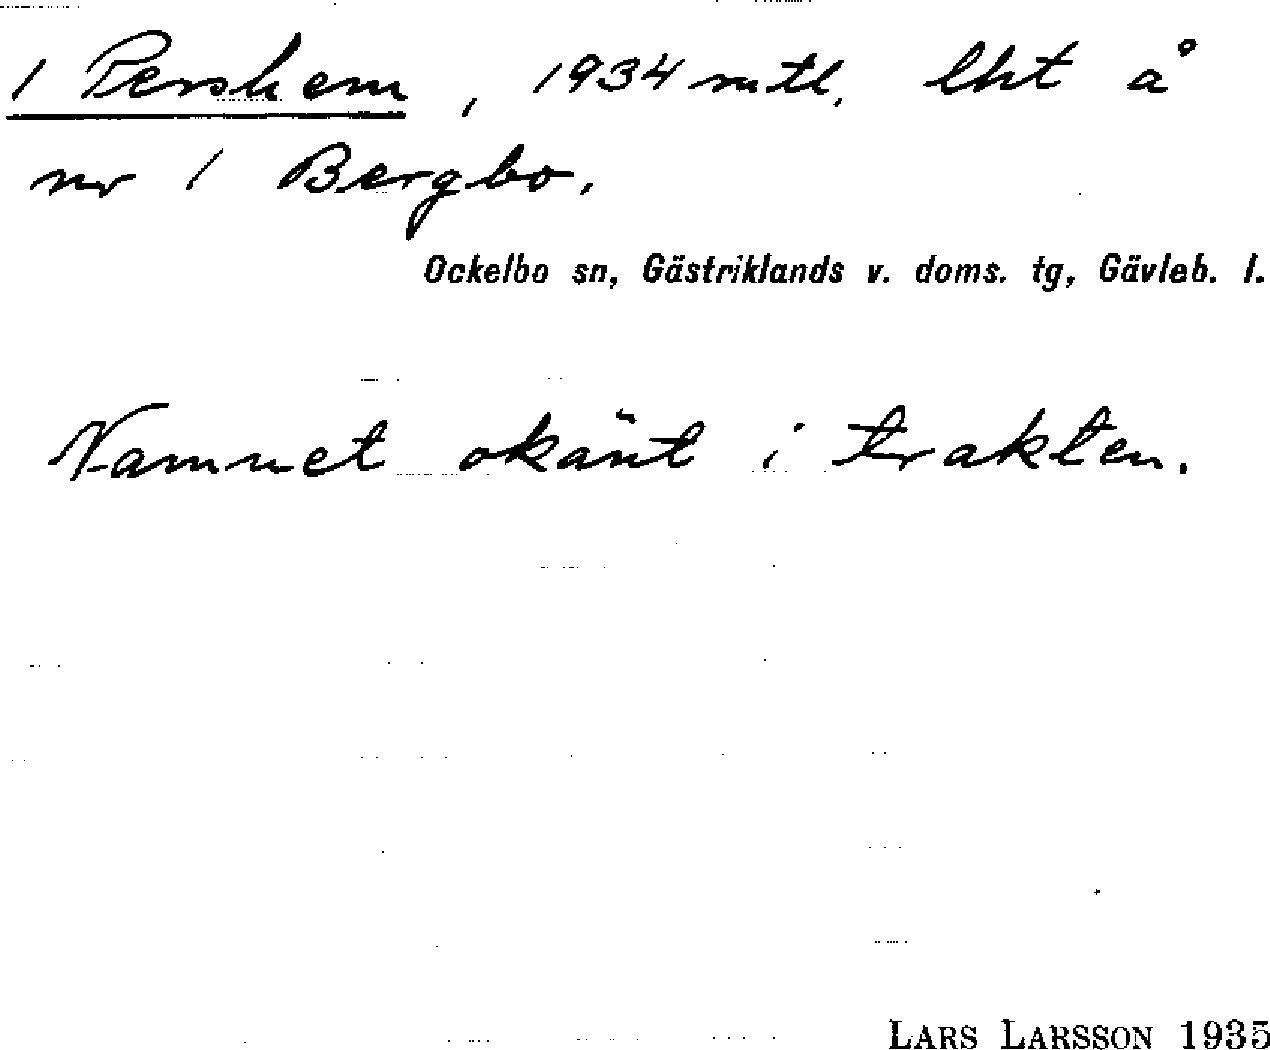 1 Pershem, 1934 mtl. lht å
nr 1 Bergbo.
Ockelbo sn, Gästriklands v. doms. tg, Gävleb. l.
Namnet okänt i trakten.
LARS LARSSON 1935